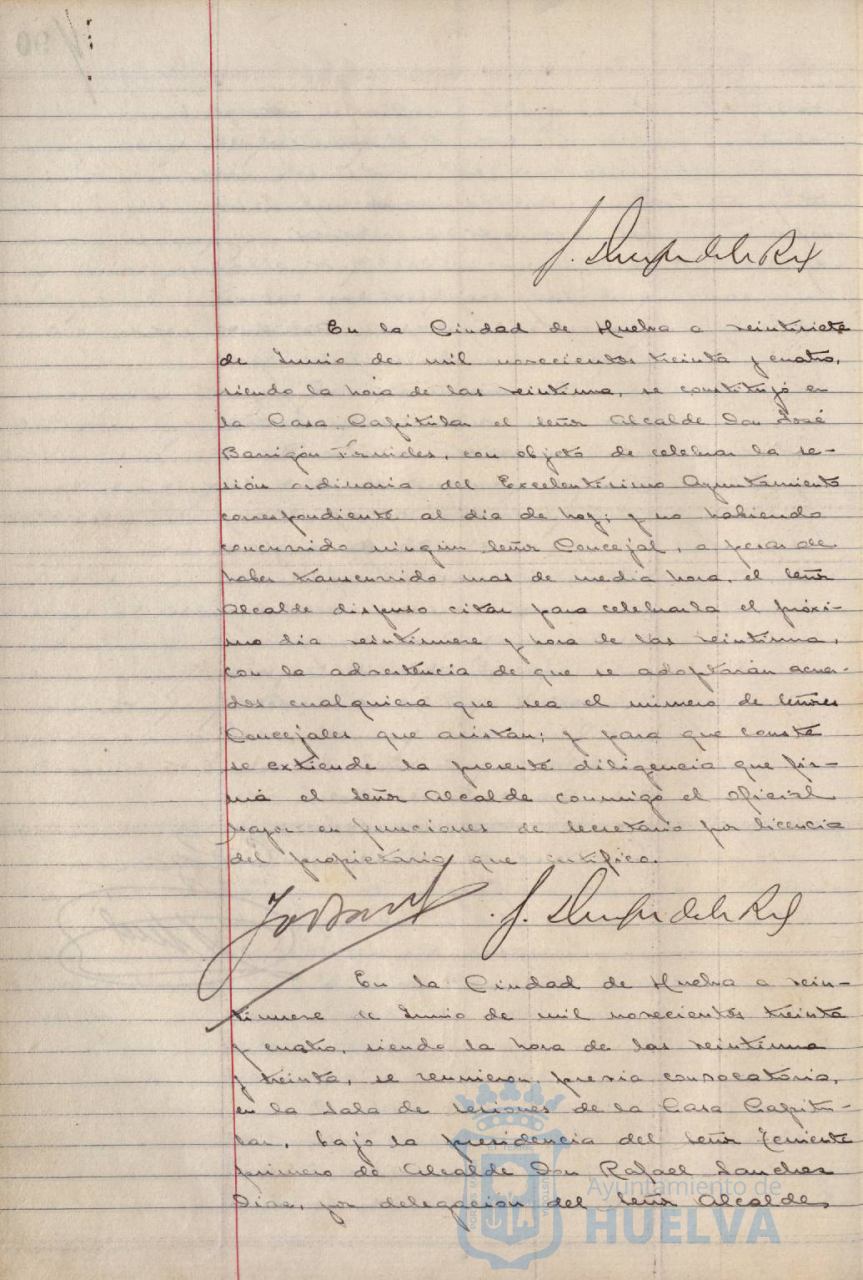 En la Ciudad de Huelva a veintisiete
de Junio de mil novecientos treinta y cuatro,
siendo la hora de las veintiuna, se constituyó en
la Casa Capitular el señor Alcalde Don José
Barrigón Fornieles, con objeto de celebrar la se-
sión ordinaria del Excelentísimo Ayuntamiento
correspondiente al día de hoy; y no habiendo
concurrido ningún señor Concejal, a pesar de
haber transcurrido mas de media hora, el señor
Alcalde dispuso citar para celebrarla el próxi-
mo día veintinueve y hora de las veintiuna,
con la advertencia de que se adoptarán acuer-
dos cualquiera que sea el número de señores
Concejales que asistan; y para que conste
se extiende la presente diligencia que fir-
ma el señor Alcalde conmigo el Oficial
Mayor en funciones de Secretario por licencia
del propietario que certifico.
En la Ciudad de Huelva a vein-
tinueve de Junio de mil novecientos treinta
y cuatro, siendo la hora de las veintiuna
y treinta, se reunieron, previa convocatoria,
en la Sala de sesiones de la Casa Capitu-
lar, bajo la presidencia del señor Teniente
primero de Alcalde Don Rafael Sanchez
Diaz, por delegación del señor Alcalde,
Ayuntamiento de
HUELVA